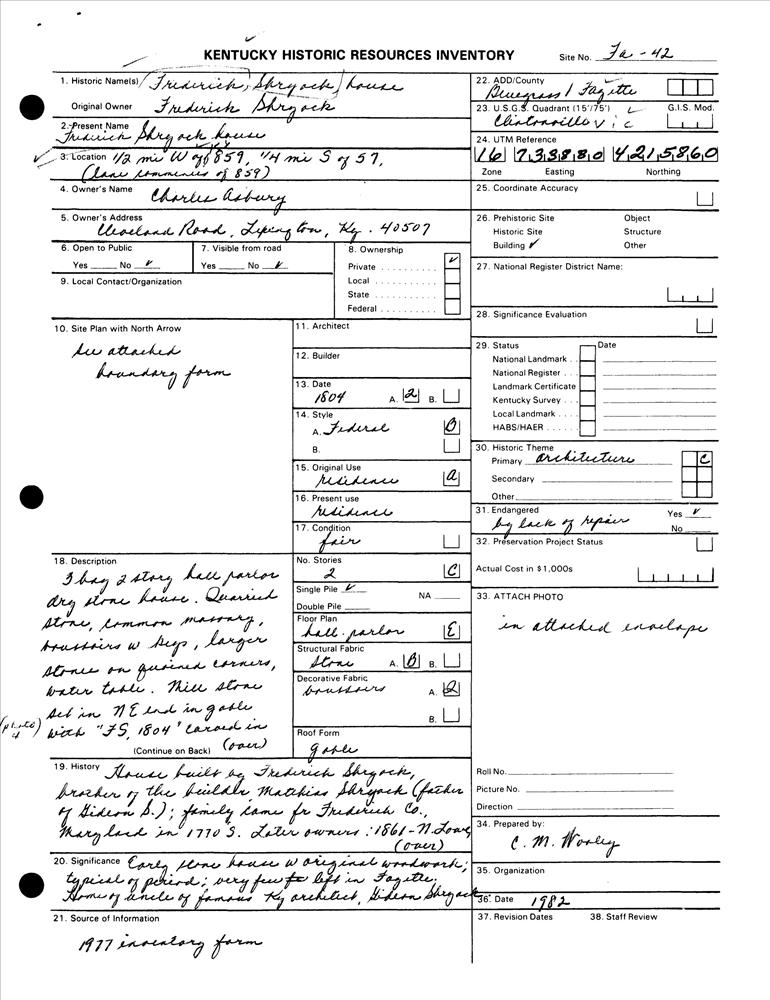 KENTUCKY HISTORIC RESOURCES INVENTORY
Site No. Fa-42
1. Historic Name(s) Frederick Shryock house
Original Owner Frederick Shryock
2. Present Name
Frederick Shryock house
3. Location 1/2 mi W of 859, 1/4 mi S of 57,
(lane of 859)
4. Owner's Name
Charles Asbury
5. Owner's Address
Cleveland Road, Lexington, Ky. 40507
6. Open to Public
Yes No ✓
7. Visible from road
Yes No ✓
8. Ownership
Private ✓
Local
State
Federal
9. Local Contact/Organization
10. Site Plan with North Arrow
See attached
boundary form
11. Architect
12. Builder
13. Date
1804 A. 2 B.
14. Style
A. Federal B
B.
15. Original Use
residence A
16. Present use
residence
17. Condition
fair
18. Description
3 bay 2 story hall parlor
dry stone house. Quarried
stone, common masonry,
voussoirs w keys, larger
stones on quoined corners,
water table. Mill stone
set in NE end in gable
(photo 4)
with "FS, 1804" carved in
(Continue on Back) (over)
No. Stories
2 C
Single Pile ✓ NA
Double Pile
Floor Plan
hall-parlor E
Structural Fabric
Stone A. B B.
Decorative Fabric
voussoirs A. 2
B.
Roof Form
gable
19. History House built by Frederick Shryock,
brother of the builder Matthias Shryock (father
of Gideon S.); family came fr Frederick Co.,
Maryland in 1770 S. Later owners: 1861-N. Lowe
(over)
20. Significance Early stone house w original woodwork;
typical of period; very few left in Fayette.
Home of uncle of famous Ky architect, Gideon Shryock
21. Source of Information
1977 inventory form
22. ADD/County
Bluegrass / Fayette
23. U.S.G.S. Quadrant (15'/75') G.I.S. Mod.
Clintonville
24. UTM Reference
16 733880 4215860
Zone Easting Northing
25. Coordinate Accuracy
26. Prehistoric Site Object
Historic Site Structure
Building ✓ Other
27. National Register District Name:
28. Significance Evaluation
29. Status Date
National Landmark
National Register
Landmark Certificate
Kentucky Survey
Local Landmark
HABS/HAER
30. Historic Theme
Primary architecture C
Secondary
Other
31. Endangered Yes ✓
by lack of repair No
32. Preservation Project Status
Actual Cost in $1,000s
33. ATTACH PHOTO
in attached envelope
Roll No.
Picture No.
Direction
34. Prepared by:
C. M. Wooley
35. Organization
36. Date 1982
37. Revision Dates 38. Staff Review